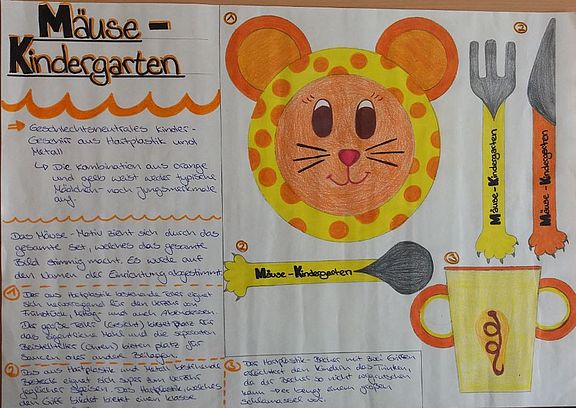 Mäuse -
Kindergarten
⇒ Geschlechtsneutrales Kinder-
Geschirr aus Hartplastik und
Metall
↳ Die Kombination aus orange
und gelb weist weder typische
Mädchen- noch Jungsmerkmale
auf.
Das Mäuse-Motiv zieht sich durch das
gesamte Set, welches das gesamte
Bild stimmig macht. Es wurde auf
den Namen der Einrichtung abgestimmt.
1 Der aus Hartplastik bestehende Teller eignet
sich hervorragend für den Verzehr von
Frühstück, Mittag- und auch Abendessen.
Der große Teller (Gesicht) bietet Platz für
das eigentliche Mahl und die separaten
Beistellteller (Ohren) bieten Platz für
Saucen oder andere Beilagen.
2 Das aus Hartplastik und Metall bestehende
Besteck eignet sich super zum Verzehr
jeglicher Speisen. Das Hartplastik, welches
den Griff bildet bietet einen
3 Der Hartplastik-Becher mit zwei Griffen
erleichtert den Kindern das Trinken,
da der Becher so nicht wegrutschen
kann. Der beugt einem großen
Schlamassel vor.
1
2
2
3
Mäuse-Kindergarten
Mäuse-Kindergarten
Mäuse-Kindergarten